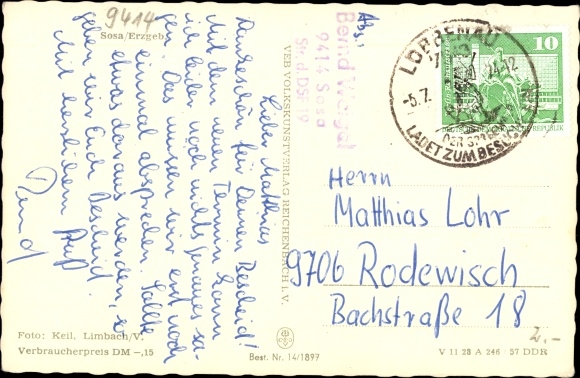 9414
Sosa/Erzgeb.
Lieber Matthias!
Dankeschön für Deinen Bescheid!
Mit dem neuen Termin kann
ich leider noch nichts genaues sa-
gen. Das müssen wir erst noch
einmal absprechen. Sollte
etwas daraus werden, so
geben wir Euch Bescheid.
Mit herzlichem Gruß
Bernd
VEB VOLKSKUNSTVERLAG REICHENBACH i. V.
Abs.:
Bernd
9414 Sosa
Str. d. DSF 19
LÜBBENAU
-5.7.
LADET ZUM BESUCH
10
DEUTSCHE DEMOKRATISCHE REPUBLIK
Herrn
Matthias Lohr
9706 Rodewisch
Bachstraße 18
2,-
Foto: Keil, Limbach/V.
Verbraucherpreis DM -,15
Best. Nr. 14/1897
V 11 28 A 246 / 57 DDR